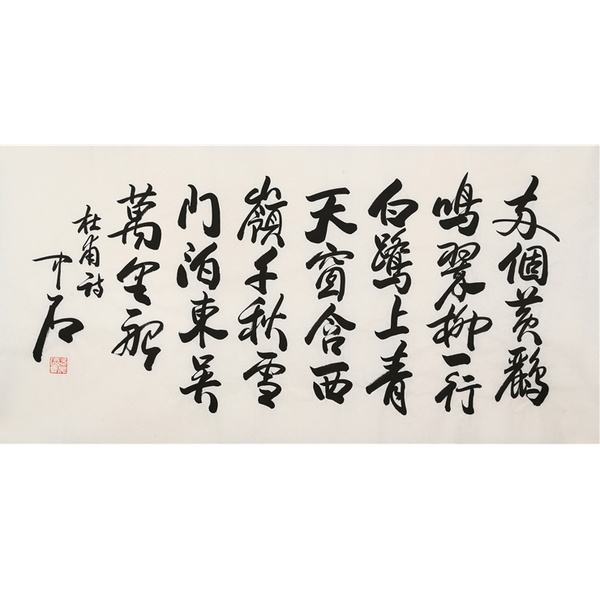 两個黄鸝
鳴翠柳一行
白鷺上青
天窗含西
嶺千秋雪
門泊東吴
萬里船
杜甫詩
中石